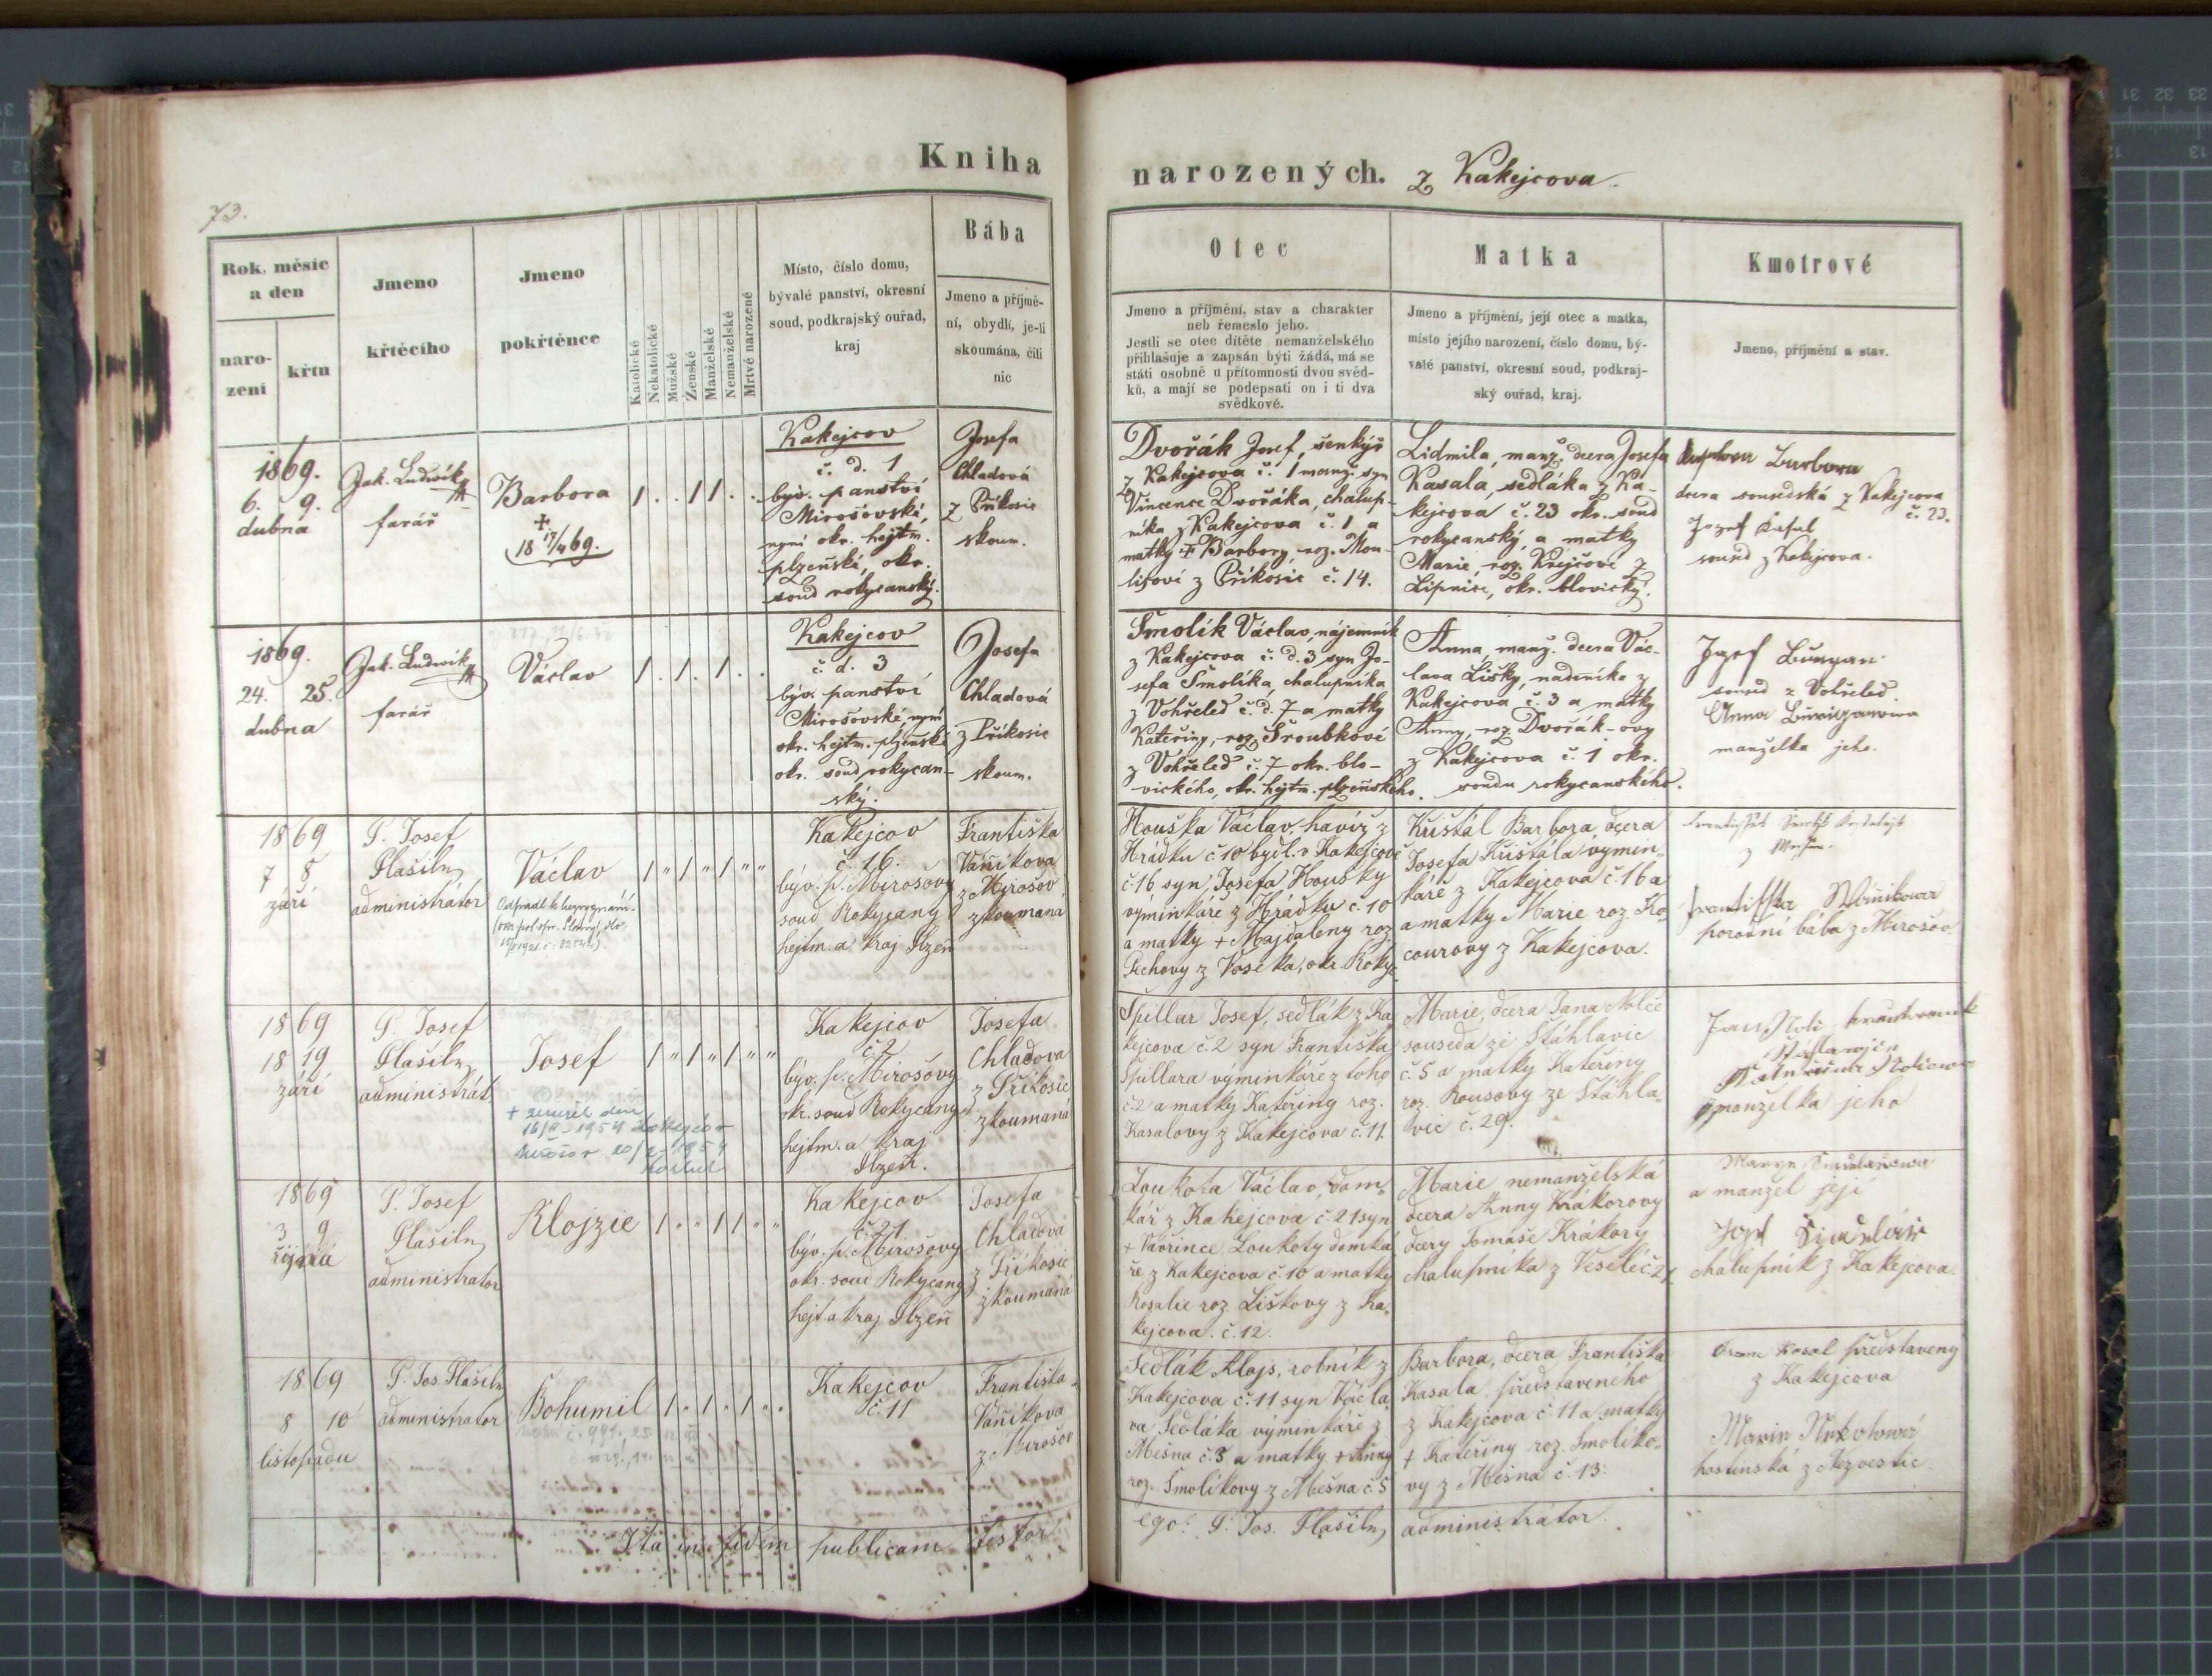 Kniha
narozených. z Kakejcova.
73.
Rok, měsíc a den
naro-
zení
křtu
Jmeno
křtěcího
Jmeno
pokřtěnce
Katolické
Nekatolické
Mužské
Ženské
Manželské
Nemanželské
Mrtvě narozené
Místo, číslo domu,
bývalé panství, okresní
soud, podkrajský ouřad,
kraj
Bába
Jmeno a příjmě-
ní, obydlí, je-li
skoumána, čili
nic
Otec
Jmeno a příjmění, stav a charakter
neb řemeslo jeho.
Jestli se otec dítěte nemanželského
přihlašuje a zapsán býti žádá, má se
státi osobně u přítomnosti dvou svěd-
ků, a mají se podepsati on i ti dva
svědkové.
Matka
Jmeno a příjmění, její otec a matka,
místo jejího narození, číslo domu, bý-
valé panství, okresní soud, podkraj-
ský ouřad, kraj.
Kmotrové
Jmeno, příjmění a stav.
1869.
6. 9.
dubna
Jak. Ludwík
farář
Barbora
+
18 17/4 69.
1 . . 1 1 . .
Kakejcov
č. d. 1
býv. panství
Mirošovské,
nyní okr. hejtm.
plzeňské, okr.
soud rokycanský.
Josefa
Chladová
z Příkosic
skoum.
Dvořák Josef, šenkýř
z Kakejcova č. 1 manž. syn
Vincence Dvořáka, chalup-
níka z Kakejcova č. 1 a
matky + Barbory, roz. Mou-
lisové z Příkosic č. 14.
Lidmila, manž. dcera Josefa
Kasala, sedláka z Ka-
kejcova č. 23 okr. soud
rokycanský, a matky
Marie, roz. Krejčové z
Lipnice, okr. blovický.
Barbora
dcera sousedská z Kakejcova
č. 23.
Jozef Kasal
soused z Kakejcova.
1869.
24. 25.
dubna
Jak. Ludwík
farář
Václav
1 . 1 . 1 . .
Kakejcov
č. d. 3
býv. panství
Mirošovské, nyní
okr. hejtm. plzeňské
okr. soud rokycan-
ský.
Josefa
Chladová
z Příkosic
skoum.
Smolík Václav, nájemník
z Kakejcova č. d. 3 syn Jo-
sefa Smolíka, chalupníka
z Vohřeled č. d. 7 a matky
Kateřiny, roz. Šroubkové
z Vohřeled č. 7 okr. blo-
vického, okr. hejtm. plzeňského.
Anna, manž. dcera Vác-
lava Lišky, nádeníka z
Kakejcova č. 3 a matky
Anny, roz. Dvořák-ovy
z Kakejcova č. 1 okr.
soudu rokycanského.
Jozef
soused z Vohřeled
Anna
manželka jeho.
1869
7 8
září
P. Josef
Hašiln
administrátor
Václav
1 " 1 " 1 " "
Kakejcov
č. 16.
býv. p. Mirošovy
soud Rokycany
hejtm. a kraj Plzeň
Františka
Váňikova
z Mirošov
zkoumaná
Houška Václav, havíř z
Hrádku č. 10 bydl. v Kakejcově
č. 16 syn Josefa Houšky
výminkáře z Hrádku č. 10
a matky + Majdaleny roz
Pechovy z Voseka, okr. Roky-
Kristál Barbora, dcera
Josefa Kristála výmin-
káře z Kakejcova č. 16 a
a matky Marie roz. Ko-
courovy z Kakejcova.
Františka Wáňikowa
porodní bába z Mirošov.
1869
18 19
září
P. Josef
Hašiln
administrát
Josef
1 " 1 " 1 " "
+ zemřel dne
16/II-1954 Kakejcov
Kakejcov
č. 2
býv. p. Mirošovy
okr. soud Rokycany
hejtm. a kraj
Plzeň.
Josefa
Chladova
z Příkosic
zkoumaná
Špillar Josef, sedlák z Ka-
kejcova č. 2 syn Františka
Špillara výminkáře z toho
č. 2 a matky Kateřiny roz.
Kasalovy z Kakejcova č. 11.
Marie, dcera Jana Nolče
souseda ze Stáhlavic
č. 5 a matky Kateřiny
roz. Rousovy ze Stáhla-
vic č. 29.
manželka jeho
1869
3 9
října
P. Josef
Hašiln
administrátor
Alojzie
1 " " 1 1 " "
Kakejcov
č. 21
býv. p. Mirošovy
okr. soud Rokycany
hejt. a kraj Plzeň
Josefa
Chladova
z Příkosic
zkoumaná
Loukota Václav, dom-
kář z Kakejcova č. 21 syn
+ Vavřince Loukoty domká-
ře z Kakejcova č. 10 a matky
Rosalie roz. Liškovy z Ka-
kejcova. č. 12.
Marie nemanželská
dcera Anny Krákorovy
dcery Tomáše Krákory
chalupníka z Veselé č. 21
a manžel její
chalupník z Kakejcova.
1869
8 10
listopadu
P. Jos. Hašiln
administrator
Bohumil
1 " 1 " 1 " "
Kakejcov
č. 11
Františka
Váňikova
z Mirošov
Sedlák Alojs, rolník z
Kakejcova č. 11 syn Václa-
va Sedláka výminkáře z
Mešna č. 3 a matky + Anny
roz. Smolíkovy z Mešna č. 5
Barbora, dcera Františka
Kasala představeného
z Kakejcova č. 11 a matky
+ Kateřiny roz. Smolíko-
vy z Mešna č. 13.
Kasal představený
z Kakejcova
hostinská z Nezvěstic
Ita in fidem publicam testor
ego: P. Jos. Hašiln, administrátor.